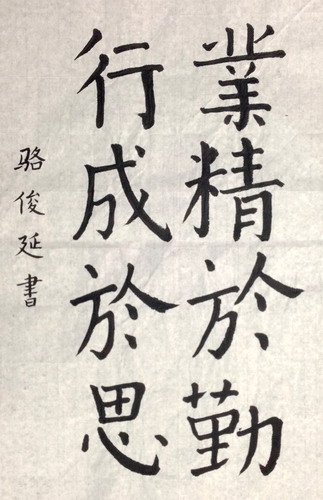 業精於勤
行成於思
骆俊延書